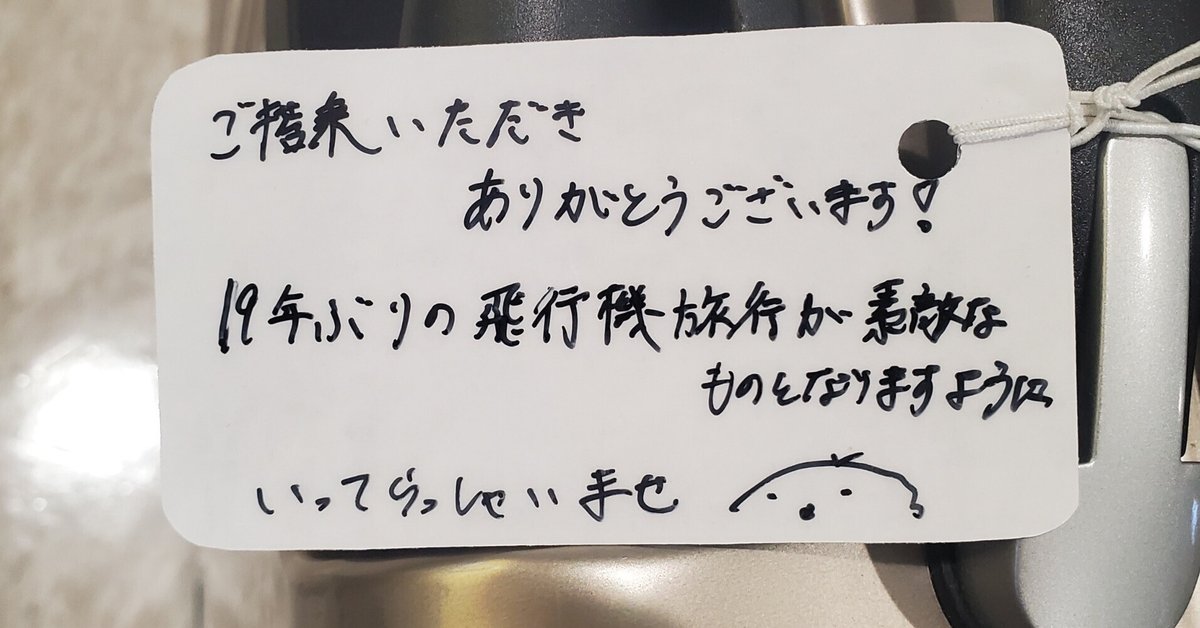 ご搭乗いただき
ありがとうございます!
19年ぶりの飛行機旅行が素敵な
ものとなりますように
いってらっしゃいませ